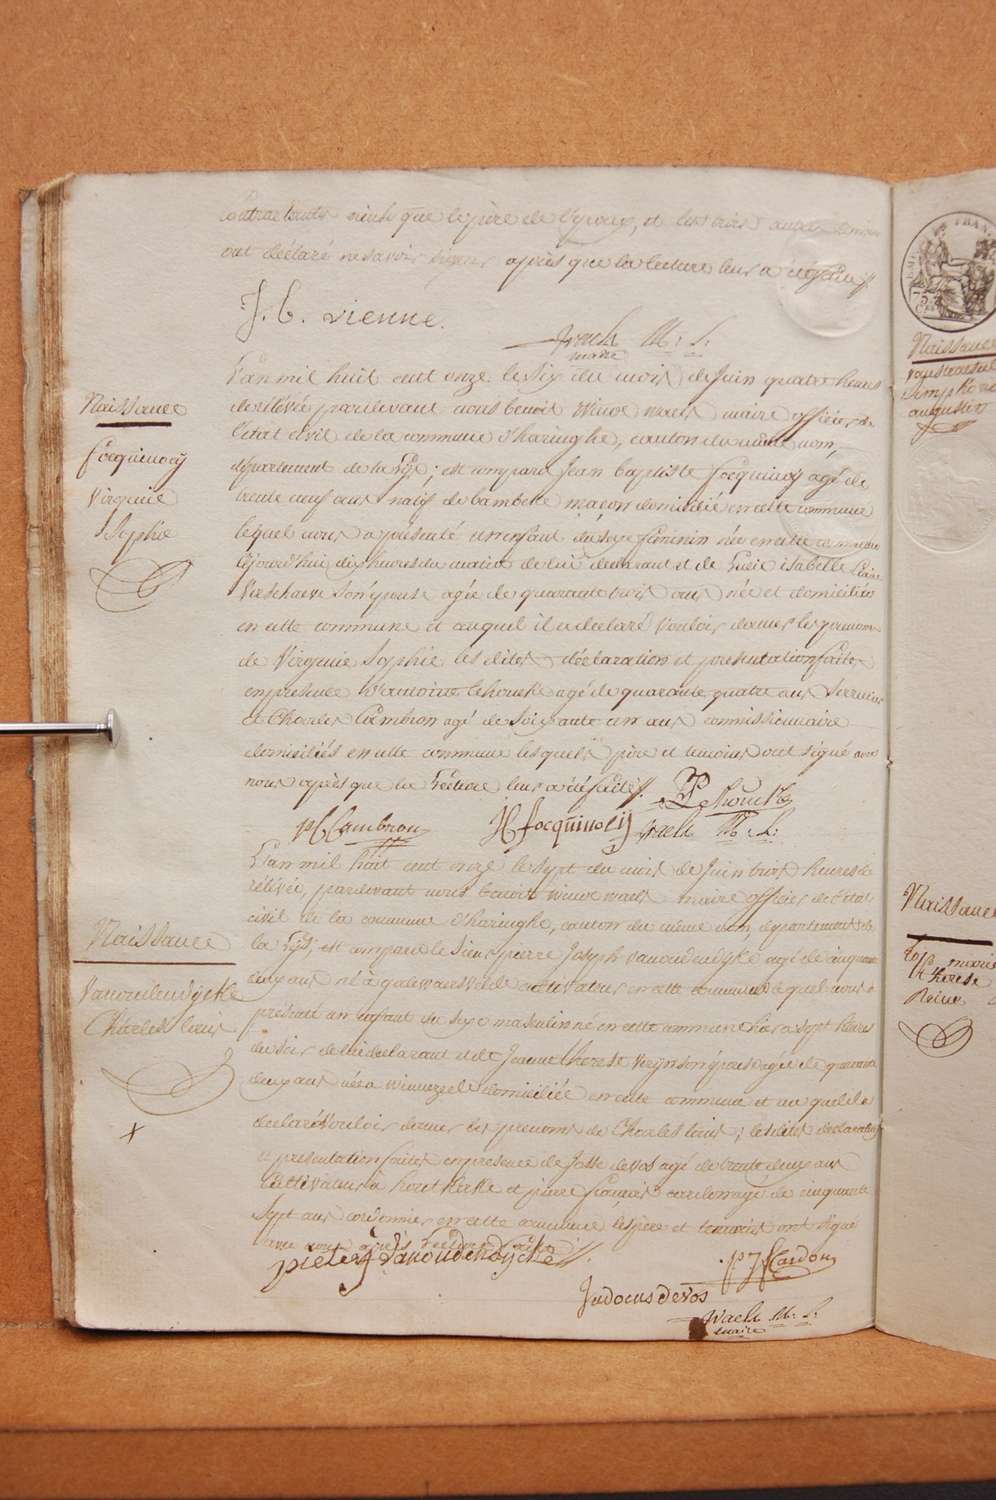 contractants ainsi que le père de l'epoux, et les trois autres temoins
ont déclaré ne savoir signer après que la lecture leur a été faite
J. b. vienne.
Waels M: L:
maire
L'an mil huit cent onze le Six du mois de Juin quatre heures
de rélévée pardevant nous benoit Winoc waels maire officier de
l'état civil de la commune d'haringhe, canton du même nom,
département de la Lÿs; est comparu Jean baptiste focquinoÿ agé de
trente neuf ans natif de bambeke maçon domicilié en cette commune
lequel nous a présenté un enfant du sexe féminin née en cette commune
cejourd'hui dix heures du matin de lui déclarant et de Lucie isabelle Claire
Verschaeve son épouse agée de quarante trois ans née et domiciliée
en cette commune et auquel il a declaré vouloir donner les prenoms
de Virginie Sophie les dites déclaration et présentation faites
en présence d'antoine Lehoucke agé de quarante quatre ans Serrurier
et Charles Cambron agé de Soixante un ans commissionnaire
domiciliés en cette commune lesquels père et temoins ont signé avec
nous après que la lecture leur a été faite
Naissance
focquinoy
Virginie
Sophie
Lehoucke
Cambron
focquinoij
Waels M: L:
L'an mil huit cent onze le sept du mois de Juin trois heures de
rélévée, pardevant nous benoit Winoc waels maire officier de l'état
civil de la commune d'haringhe, canton du même nom, département de
la Lÿs, est comparu le Sieur pierre Joseph vanoudendycke agé de cinquante
deux ans né à cultivateur en cette commune lequel nous a
présenté un enfant du sexe masculin né en cette commune hier a sept heures
du soir de lui déclarant et de Jeanne therese son épouse agée de quarante
deux ans née a winnezeele domiciliée en cette commune et au quel il a
declaré vouloir donner les prenoms de Charles Louis; les dites déclaration
et présentation faites en présence de Josse devos agé de trente deux ans
Cultivateur a et pierre françois cardon agé de cinquante
Sept ans cordonnier en cette commune les père et temoins ont signé
avec nous après lecture faite
Naissance
Vanoudendycke
Charles Louis
pieter J Vanoudendycke
p J f Cardon
Judocus devos
Waels M: L:
maire
Naissance
Simphorien
augustin
Naissance
marie
therese
Reine